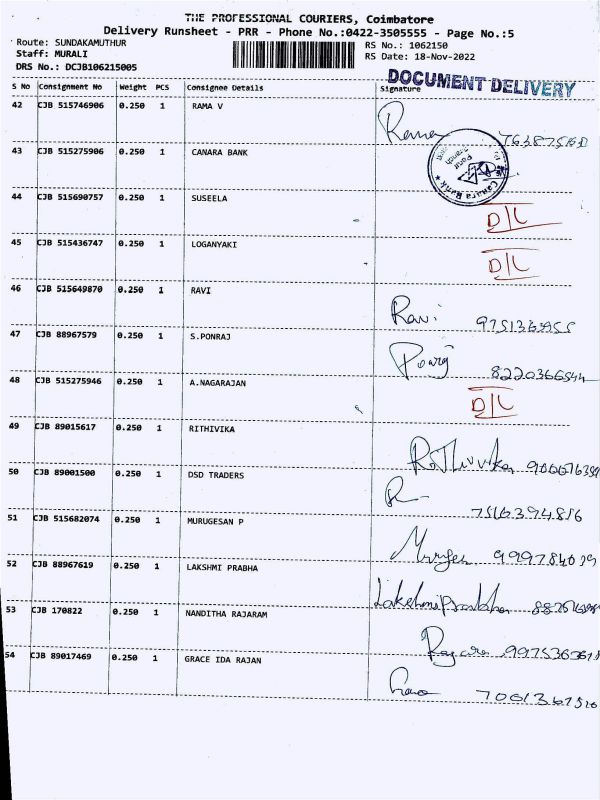 THE PROFESSIONAL COURIERS, Coimbatore
Delivery Runsheet - PRR - Phone No.:0422-3505555 - Page No.:5
Route: SUNDAKAMUTHUR RS No.: 1062150
Staff: MURALI RS Date: 18-Nov-2022
DRS No.: DCJB106215005
DOCUMENT DELIVERY
S No Consignment No Weight PCS Consignee Details Signature
42 CJB 515746906 0.250 1 RAMA V Rama
43 CJB 515275906 0.250 1 CANARA BANK
Canara Bank
44 CJB 515690757 0.250 1 SUSEELA D/L
45 CJB 515436747 0.250 1 LOGANYAKI D/L
46 CJB 515649870 0.250 1 RAVI Ravi
47 CJB 88967579 0.250 1 S.PONRAJ 8220366544
48 CJB 515275946 0.250 1 A.NAGARAJAN D/L
49 CJB 89015617 0.250 1 RITHIVIKA
50 CJB 89001500 0.250 1 DSD TRADERS 7516394816
51 CJB 515682074 0.250 1 MURUGESAN P
52 CJB 88967619 0.250 1 LAKSHMI PRABHA Lakshmi Prabha
53 CJB 170822 0.250 1 NANDITHA RAJARAM
54 CJB 89017469 0.250 1 GRACE IDA RAJAN